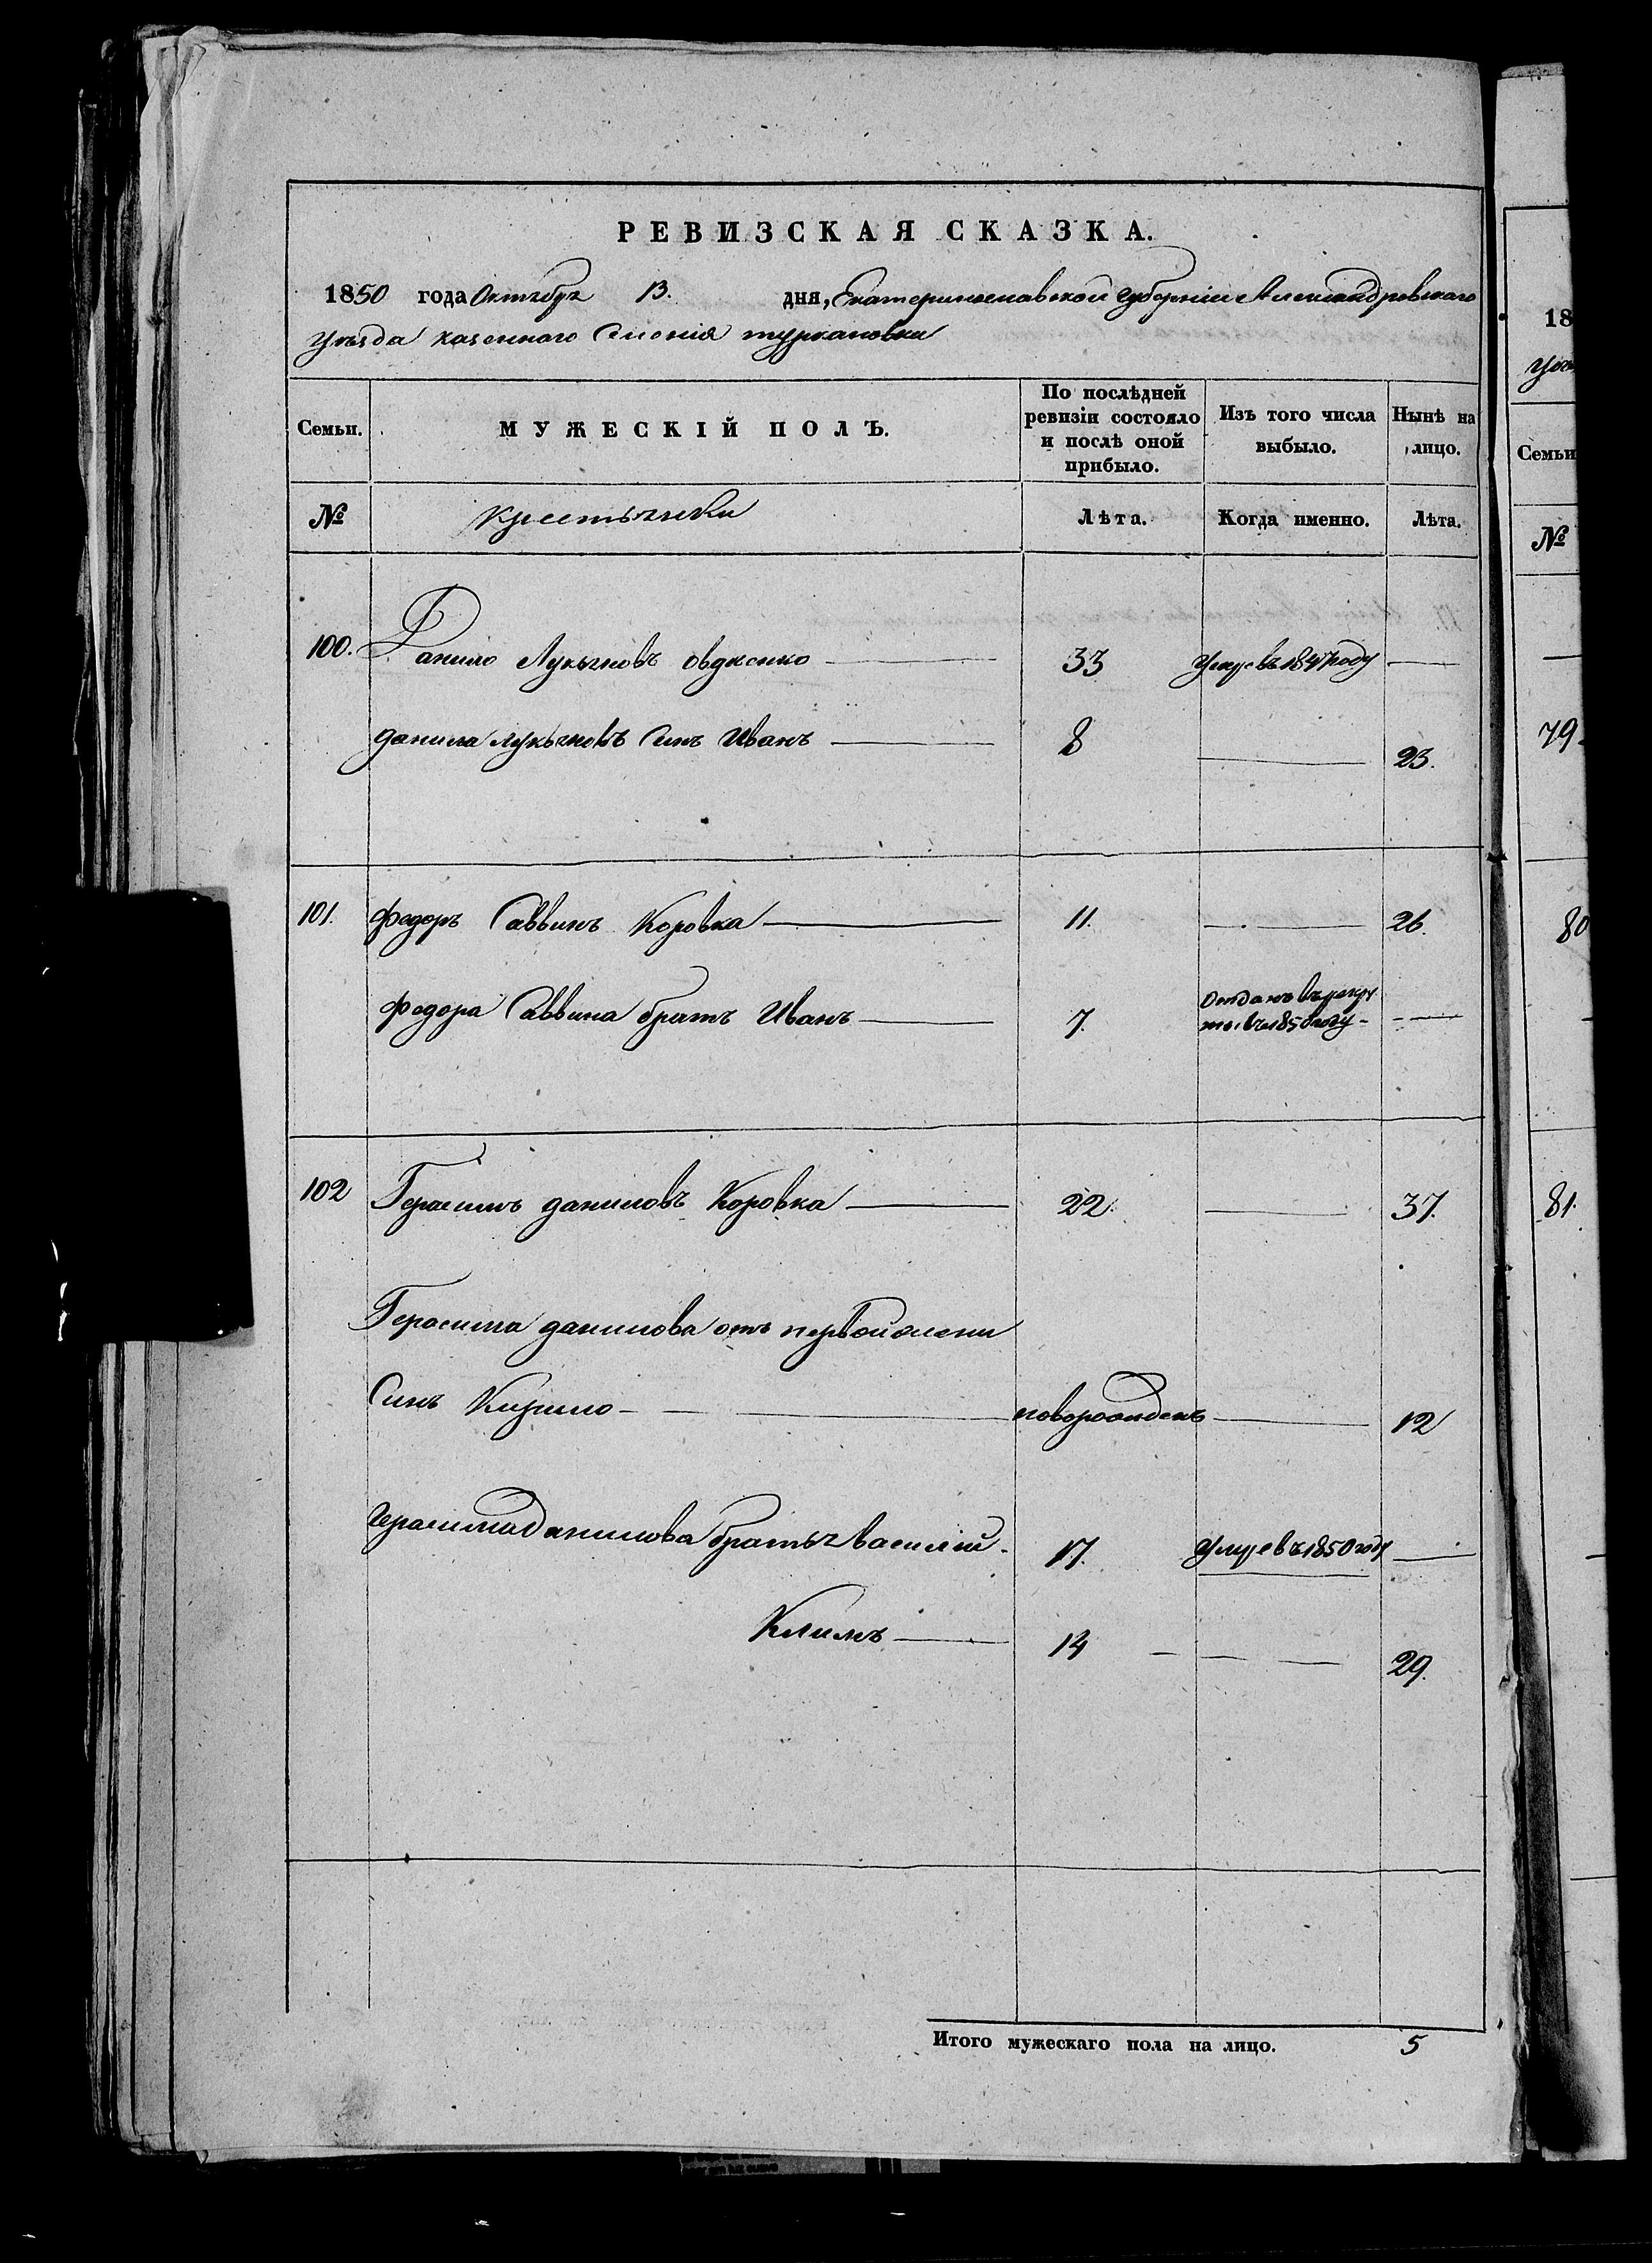 РЕВИЗСКАЯ СКАЗКА.
1850 года Октября 13. дня, Екатеринославской губернии Александровского
уезда казенного Селения туркановки
Семьи. МУЖЕСКІЙ ПОЛЪ. По послѣдней ревизіи состояло и послѣ оной прибыло. Изъ того числа выбыло. Нынѣ на лицо.
№ крестьянки Лѣта. Когда именно. Лѣта.
100. Данило Лукьяновъ 33 Умре въ 1847 году
данила лукьяновъ Синъ Иванъ 8 23.
101. федоръ Саввинъ Коровка 11. 26.
федора Саввина братъ Иванъ 7. Отданъ въ рекру
ты въ 1850 году
102 Герасимъ даниловъ Коровка 22. 37.
Герасима данилова отъ первой жени
Синъ Кирило новорожденъ 12
Герасима Данилова братья василій 17. Умре въ 1850 году
Климъ 14 29.
Итого мужескаго пола на лицо. 5
18
Семьи
№
79
80
81.